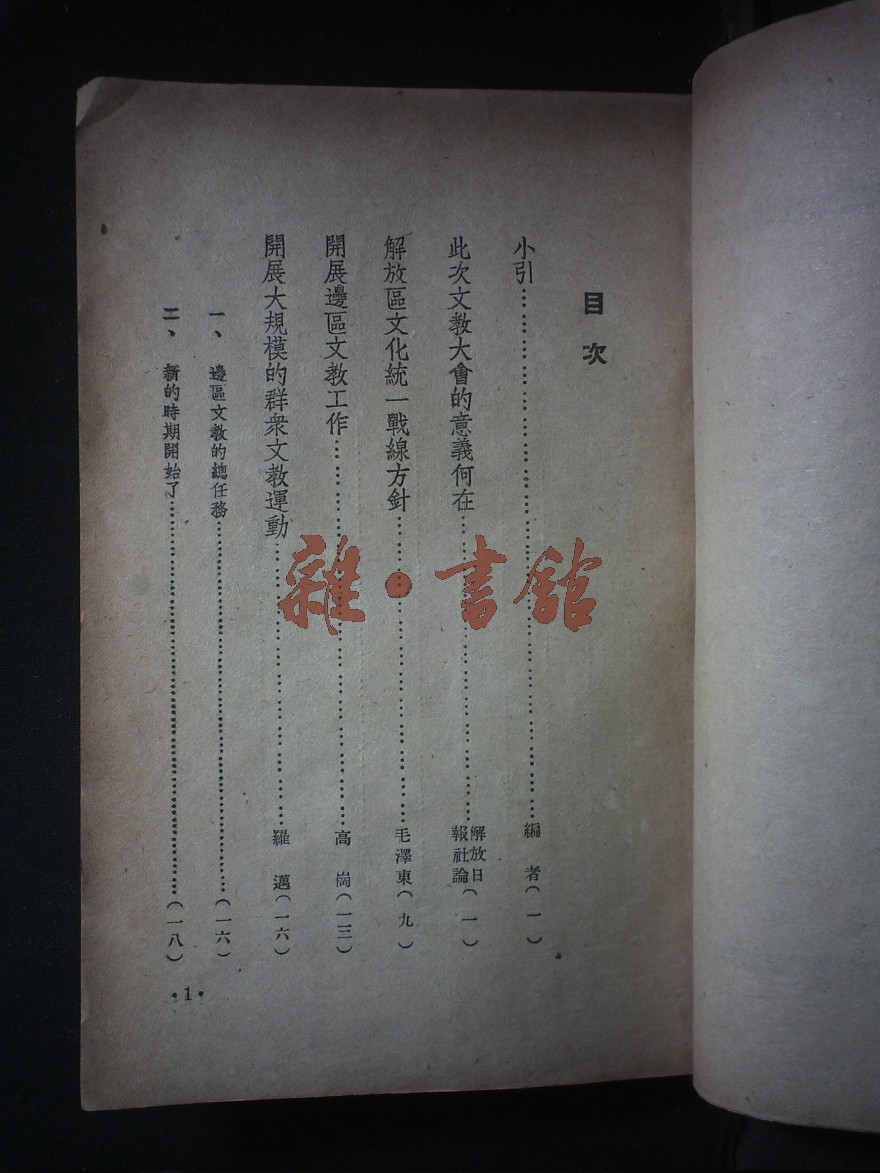 目次
小引……………………編者(一)
此次文教大會的意義何在……………………解放日報社論(一)
解放區文化統一戰線方針……………………毛澤東(九)
開展邊區文教工作……………………高崗(一三)
開展大規模的群衆文教運動……………………羅邁(一六)
一、邊區文教的總任務……………………(一六)
二、新的時期開始了……………………(一八)
•1•
雜•書館